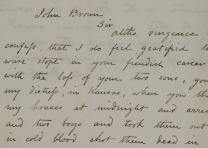 John Brown
Sir
altho vengence
confess, that I do feel gratified to
ware stopt in your fiendish career
with the loss of your two sons, you
my distress, in Kansas, when you th
my house at midnight and arre
and two boys and took them out
in cold blood shot them dead in